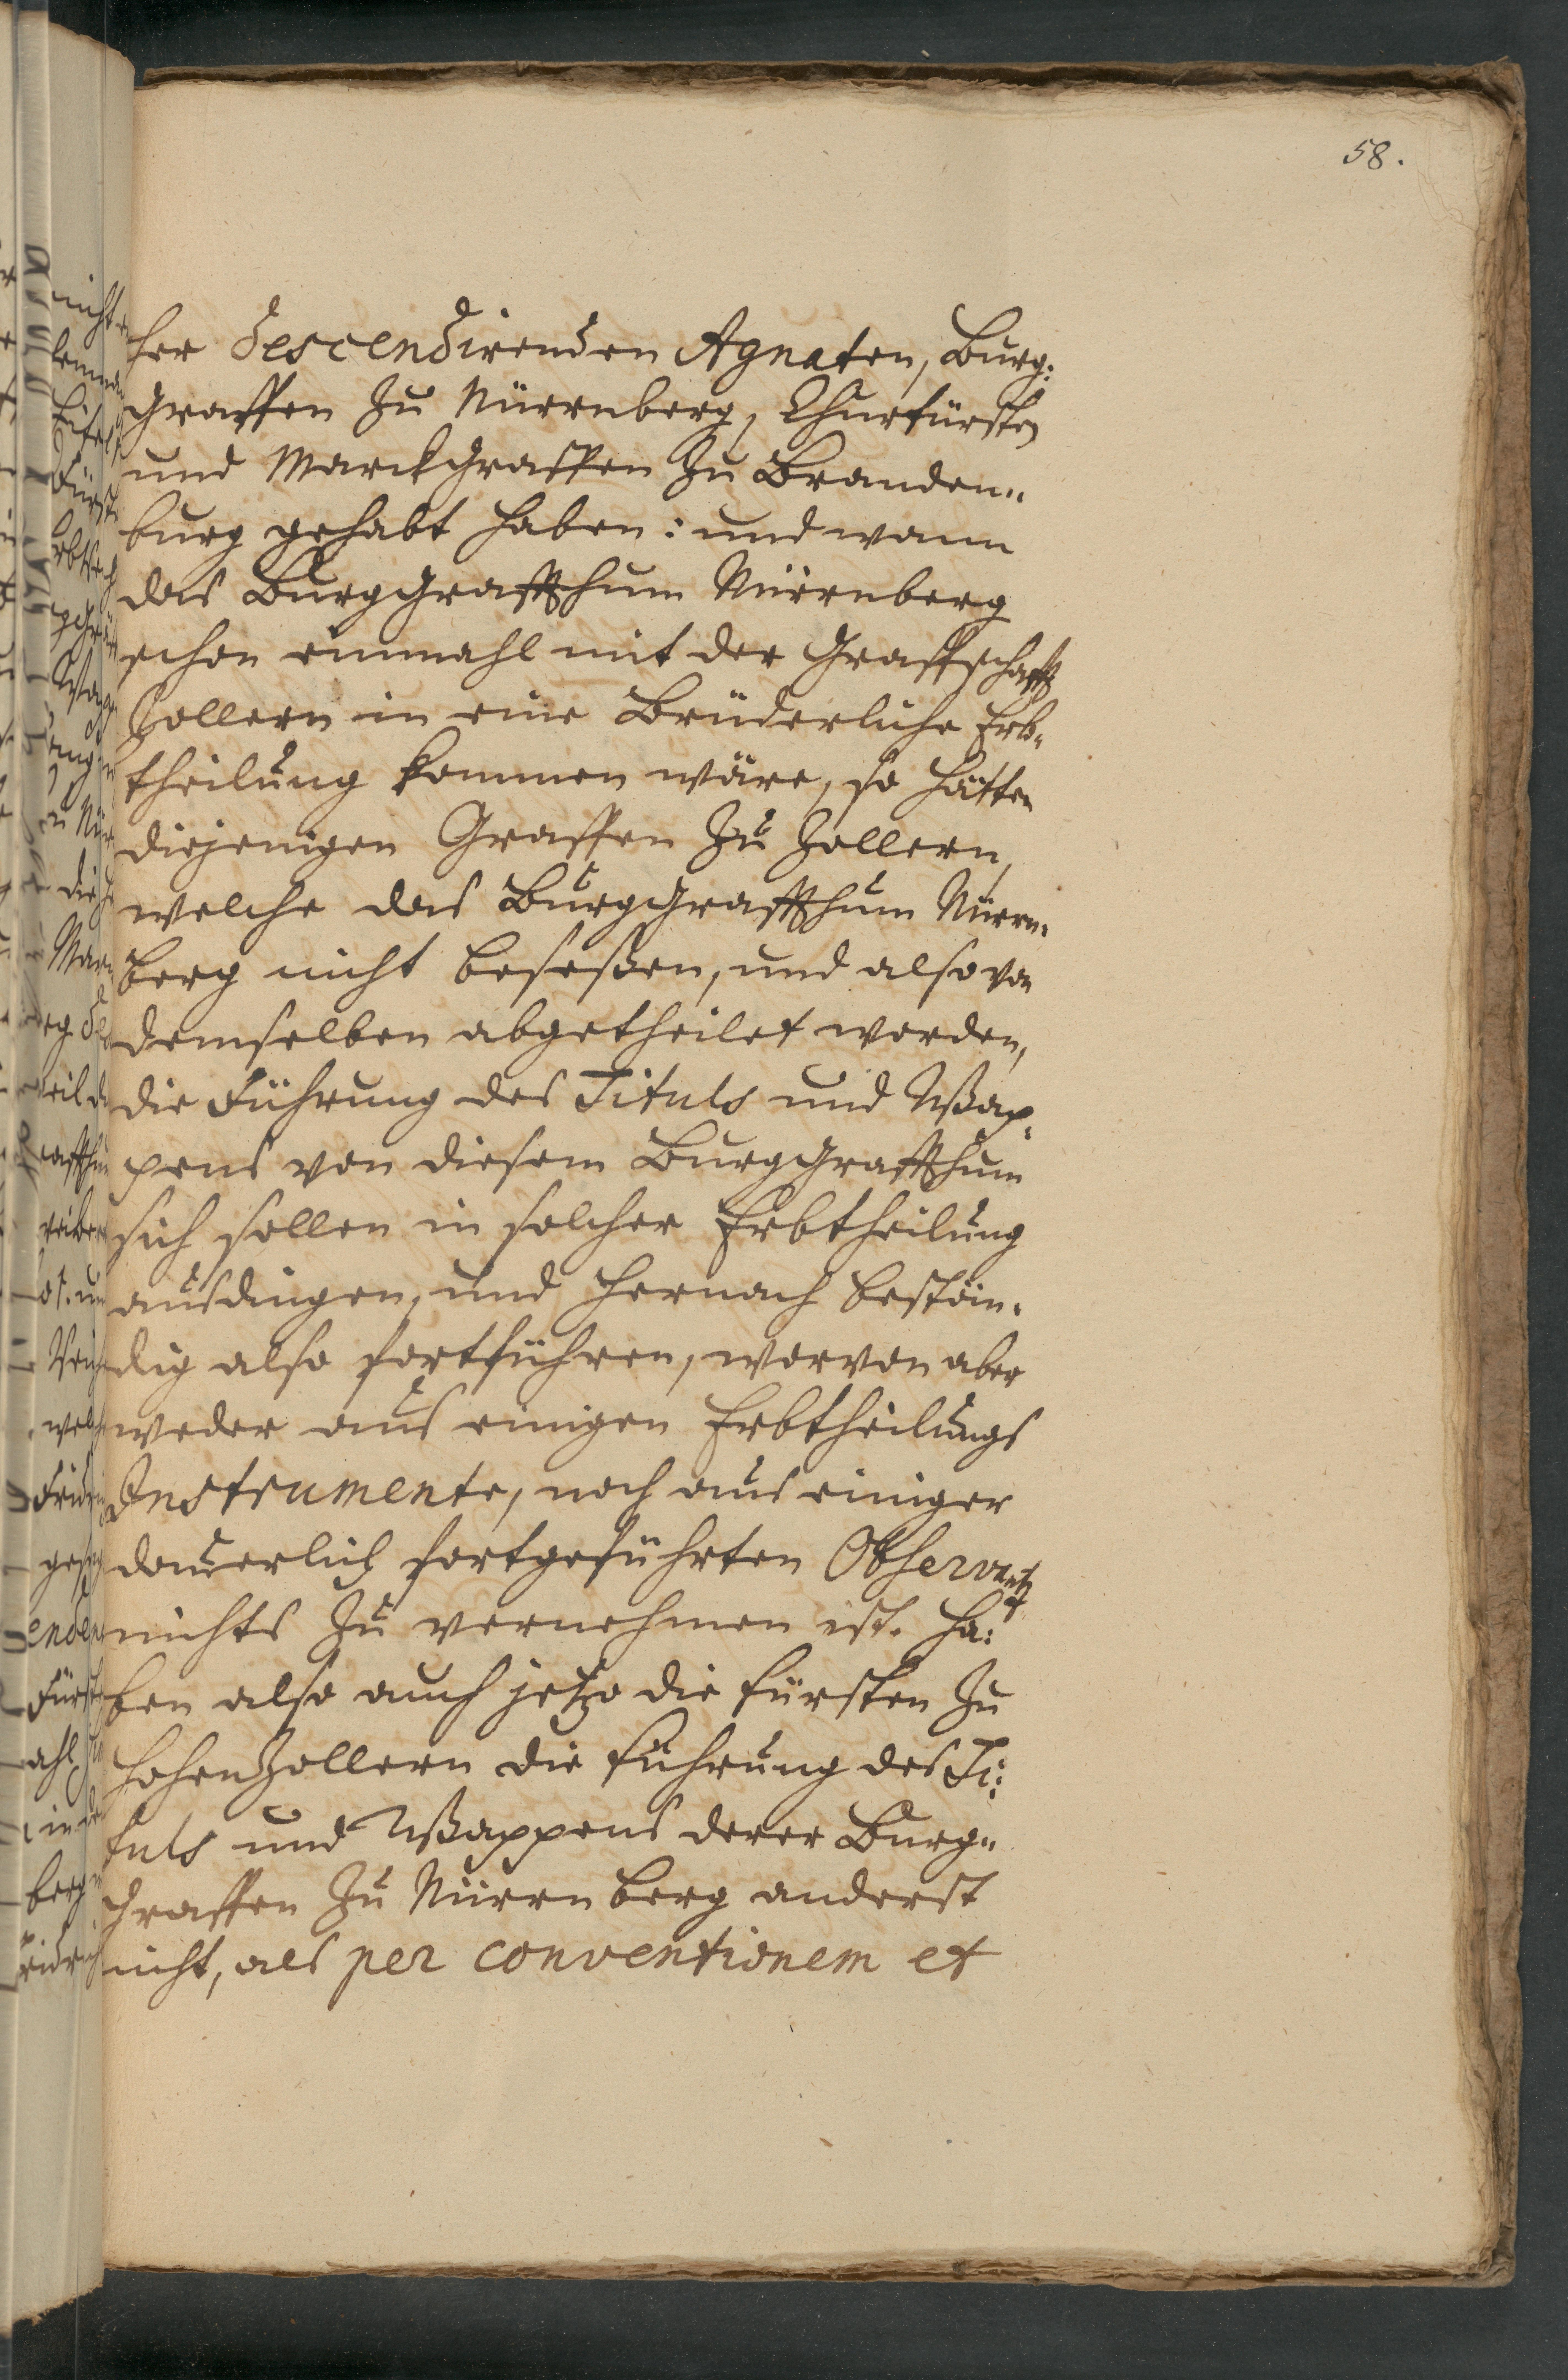 58.
her descendirenden Agnaten, Burg:
Graffen zu Nürrnberg, Churfürsten
und Marckgraffen zu Branden„
burg gehabt haben: und wann
das Burggraffthum Nürrnberg
schon einmahl mit der Graffschafft
Zollern in eine Brüderliche Erb„
theilung kommen wäre, so hätten
diejenigen Graffen zu Zollern,
welche das Burggraffthum Nürrn„
berg nicht beseßen, und also von
demselben abgetheilet worden,
die Führung des Tituls und Wap„
pens von diesem Burggraffthum
sich sollen in solcher Erbtheilung
ausdingen, und hernach bestän„
dig also fortführen, worvon aber
weder aus einigen Erbtheilungs
Instrumente, noch aus einiger
dauerlich fortgeführten Observantz
nichts zu vernehmen ist. Ha:
ben also auch jetzo die Fürsten zu
Hohenzollern die Führung des Ti:
tuls und Wappens derer Burg„
Graffen zu Nürrnberg anderst
nicht, als per conventionem et